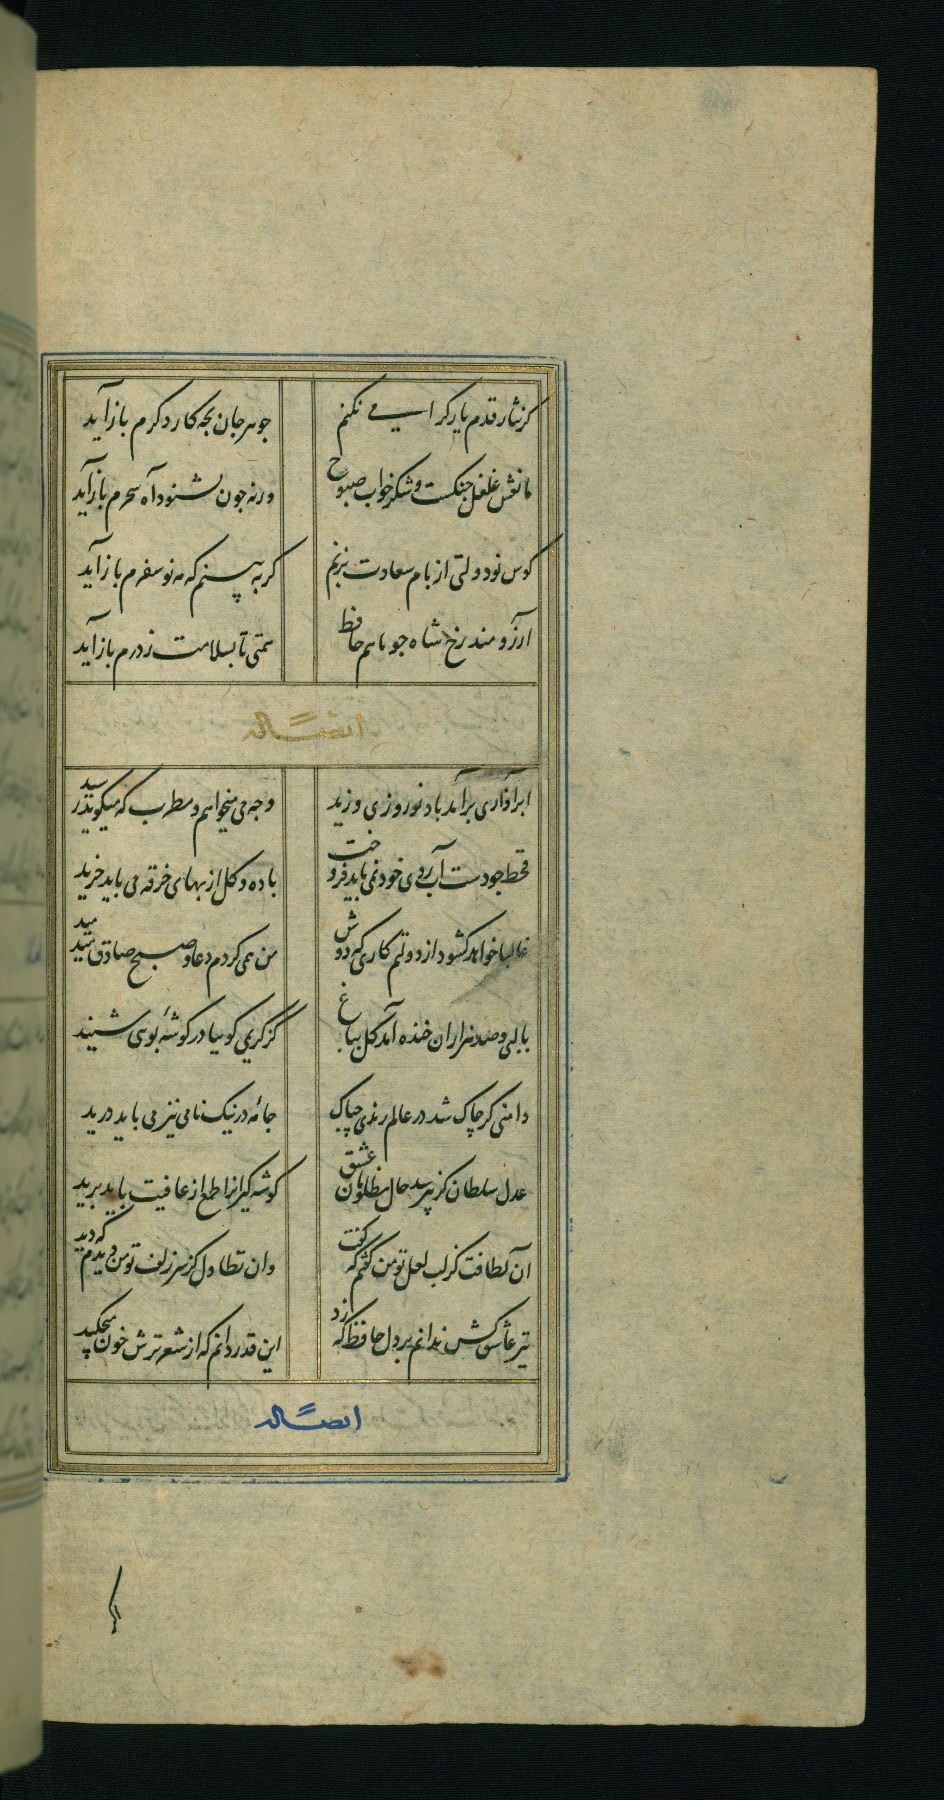 کر نثار قدم یار کرامی نکنم
جوهر جان بچه کار دکرم باز آید
مانعش غلغل چنکست و شکر خواب صبوح
ورنه چون بشنود آه سحرم باز آید
کوس نو دولتی از بام سعادت بزنم
کر به بینم که مه نو سفرم باز آید
آرزومند رخ شاه چو ماهم حافظ
همتی تا بسلامت ز درم باز آید
ایضاً له
ابر آذاری برآمد باد نوروزی وزید
وجه می میخواهم و مطرب که میکوید رسید
قحط جودست آب روی خود نمی باید فروخت
باده و کل از بهای خرقه می باید خرید
غالبا خواهد کشود از دولتم کاری که دوش
من همی کردم دعا و صبح صادق میدمید
با لبی و صد هزاران خنده آمد کل بباغ
از کریمی کوییا در کوشهٔ بویی شنید
دامنی کر چاک شد در عالم رندی چه باک
جامهٔ در نیک نامی نیز می باید درید
عدل سلطان کر نپرسد حال مظلومان عشق
کوشه کیرانرا طمع از عافیت باید برید
آن لطافت کز لب لعل تو من کفتم که کفت
وان تطاول کز سر زلف تو من دیدم که دید
تیر عاشق کش ندانم بر دل حافظ که زد
این قدر دانم که از شعر ترش خون میچکید
ایضاً له